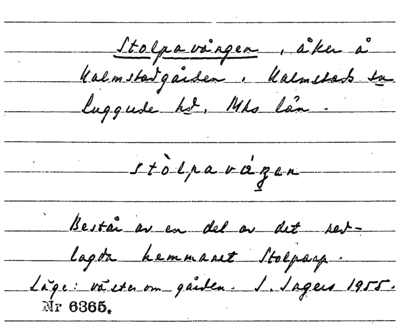 Stolpavången, åker å
Halmstadgården, Halmstads sn
Luggude hd, Mhs län.
stòlpavåŋan
Består av en del av det ned-
lagda hemmanet Stolparp.
Läge: väster om gården. I. Ingers 1955.
Nr 6365.